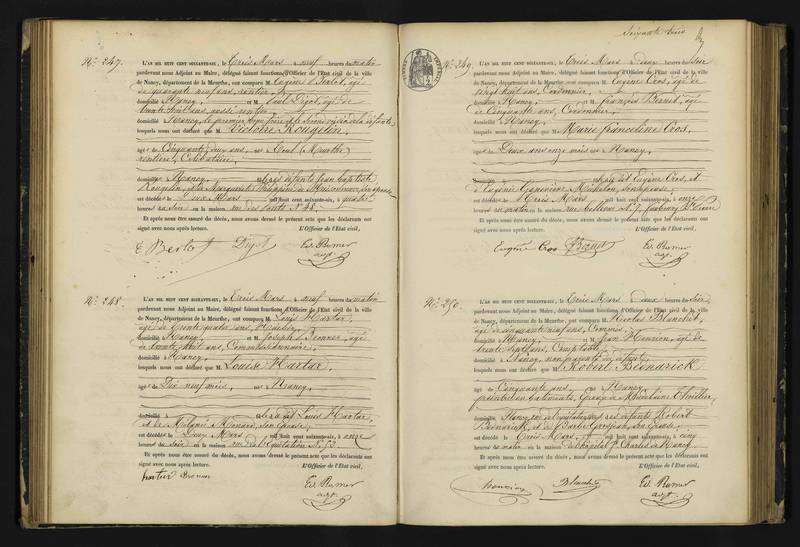 N.° 247.
L'AN MIL HUIT CENT SOIXANTE-SIX, le trois Mars à neuf heures du matin
pardevant nous Adjoint au Maire, délégué faisant fonctions d'Officier de l'Etat civil de la ville
de Nancy, département de la Meurthe, ont comparu M. Eugène Berlot, âgé
de quarante neuf ans, rentier,
domicilié à Nancy, et M. Paul Digot, âgé de
trente huit ans, aussi rentier,
domicilié à Nancy, le premier beau frère et le second de la défunte,
lesquels nous ont déclaré que M. Victoire Rougelin,
âgée de Cinquante deux ans, née à Toul (Meurthe)
rentière, Célibataire,
domiciliée à Nancy, fille des défunts Jean Baptiste
Rougelin, et Marguerite
est décédée le Deux Mars mil huit cent soixante-six, à quatre
heures du soir en la maison rue des N.° 48.
Et après nous être assuré du décès, nous avons dressé le présent acte que les déclarants ont
signé avec nous après lecture. L'Officier de l'Etat civil,
E. Berlot Digot Ed. Romer
adjt.
N.° 248.
L'AN MIL HUIT CENT SOIXANTE-SIX, le Trois Mars à neuf heures du matin
pardevant nous Adjoint au Maire, délégué faisant fonctions d'Officier de l'Etat civil de la ville
de Nancy, département de la Meurthe, ont comparu M. Louis Hartar,
âgé de trente quatre ans,
domicilié à Nancy, et M. Joseph Bronner, âgé
de trente huit ans, Commissionnaire,
domicilié à Nancy,
lesquels nous ont déclaré que M. Louise Hartar,
âgée de Dix neuf mois, née à Nancy,
domiciliée à fille de Louis Hartar,
et de Mélanie Monard, son épouse,
est décédée le Deux Mars mil huit cent soixante-six, à onze
heures du soir en la maison rue de l'Equitation N.° 13.
Et après nous être assuré du décès, nous avons dressé le présent acte que les déclarants ont
signé avec nous après lecture. L'Officier de l'Etat civil,
hartar Bronner Ed. Romer
adjt.
Soixante trois
N.° 249.
L'AN MIL HUIT CENT SOIXANTE-SIX, le Trois Mars à deux heures du soir
pardevant nous Adjoint au Maire, délégué faisant fonctions d'Officier de l'Etat civil de la ville
de Nancy, département de la Meurthe, ont comparu M. Eugène Cros, âgé de
vingt huit ans, Cordonnier,
domicilié à Nancy, et M. François Bernet, âgé
de Cinquante ans, Cordonnier,
domicilié à Nancy,
lesquels nous ont déclaré que M. Marie Franceline Cros,
âgée de Deux ans onze mois née à Nancy,
fille de Eugène Cros, et
d'Eugénie Geneviève Michelon, son épouse,
est décédée le Trois Mars mil huit cent soixante-six, à onze
heures du matin en la maison rue N.° 7. faubourg St Pierre
Et après nous être assuré du décès, nous avons dressé le présent acte que les déclarants ont
signé avec nous après lecture. L'Officier de l'Etat civil,
Eugène Cros Ed. Romer
adjt.
N.° 250.
L'AN MIL HUIT CENT SOIXANTE-SIX, le Trois Mars à deux heures du soir,
pardevant nous Adjoint au Maire, délégué faisant fonctions d'Officier de l'Etat civil de la ville
de Nancy, département de la Meurthe, ont comparu M. Nicolas Blanchot,
âgé de cinquante neuf ans, Commis,
domicilié à Nancy, et M. Jean Henrion, âgé de
trente quatre ans, Comptable,
domicilié à Nancy, non parents du défunt,
lesquels nous ont déclaré que M. Robert Bidnarick
âgé de Cinquante ans, né à Nancy,
peintre en batiments, époux de Madelaine Thuillier,
domicilié à Nancy, fils des défunts Robert
Bidnarick, et de Barbe son épouse,
est décédé le Trois Mars mil huit cent soixante-six, à cinq
heures du matin en la maison de l'hospice St Charles de Nancy.
Et après nous être assuré du décès, nous avons dressé le présent acte que les déclarants ont
signé avec nous après lecture. L'Officier de l'Etat civil,
henrion Blanchot Ed. Romer
adjt.